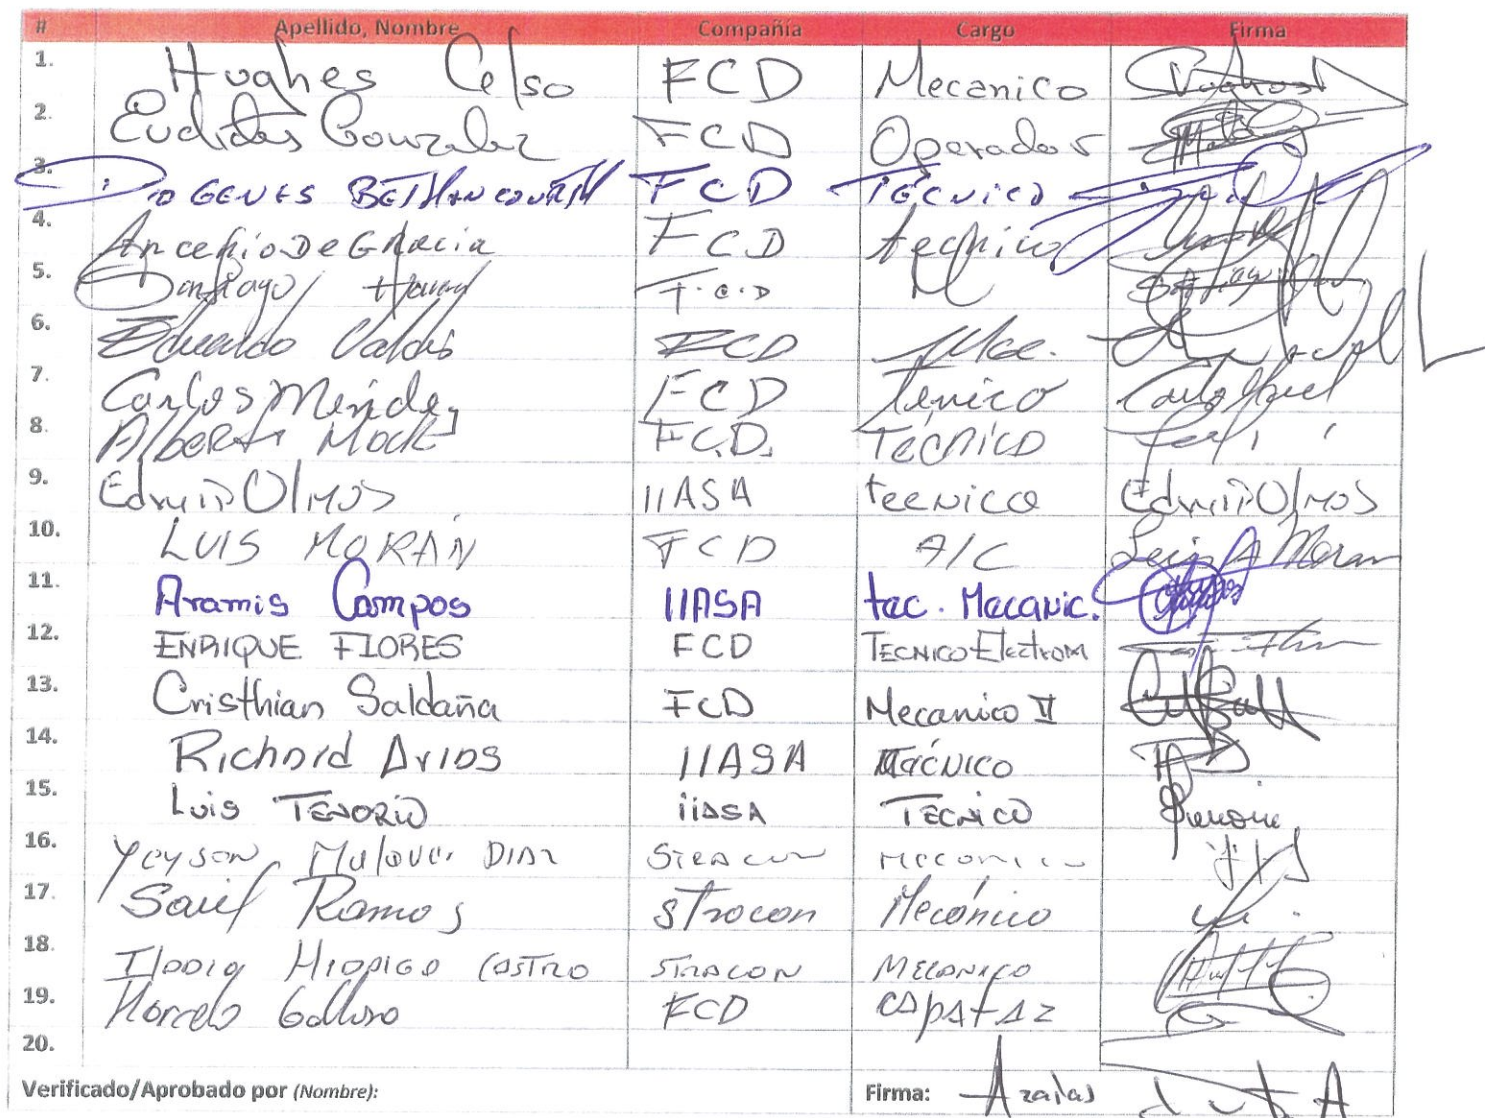 # Apellido, Nombre Compañía Cargo Firma
1. Hughes Celso FCD Mecanico
2. Euclides Gonzalez FCD Operador
3. DIOGENES BETHANCOURTH FCD TÉCNICO
4. DE GRACIA FCD tecnico
5. Santiago F.C.D
6. Eduardo Valdés FCD Mec.
7. Carlos Méndez FCD Tenico
8. Alberto Mock F.C.D. TECNICO
9. Edwin Olmos IIASA tecnico Edwin Olmos
10. LUIS MORÁN FCD A/C Luis A Moran
11. Aramis Campos IIASA tec. Mecanic.
12. ENRIQUE FLORES FCD TECNICO Electrom
13. Cristhian Saldaña FCD Mecanico II
14. Richard Arias IIASA TÉCNICO
15. Luis TENORIO iiASA TECNICO
16. Yeyson DIAZ STRACON MECANICO
17. Saul Ramos Stracon Mecánico
18. CASTRO STRACON MECANICO
19. Marcelo FCD CAPATAZ
20.
Verificado/Aprobado por (Nombre): Firma: